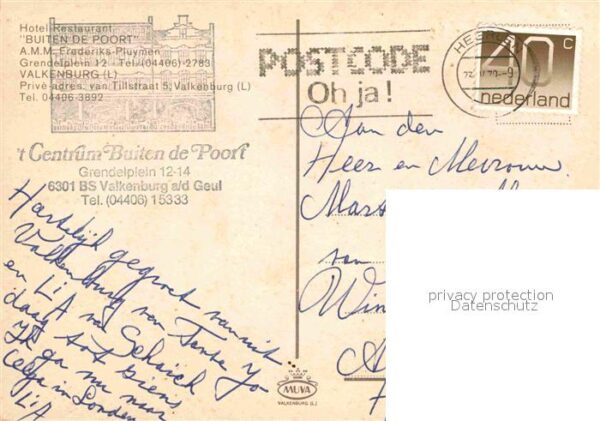 Hotel Restaurant
"BUITEN DE POORT"
A.M.M. Frederiks-Pluymen
Grendelplein 12 - Tel. (04406) 2783
VALKENBURG (L)
Privé-adres: van Tillstraat 5, Valkenburg (L)
Tel. 04406-3892
't Centrum Buiten de Poort
Grendelplein 12-14
6301 BS Valkenburg a/d Geul
Tel. (04406) 15333
Hartelijk gegroet vanuit
Valkenburg van Tante Jo
en L'A v Schaick
daag tot ziens.
Ik ga nu naar
in Londen
L'A
POSTCODE
Oh ja!
40 c
nederland
Aan den
Heer en Mevrouw
van
MUVA
VALKENBURG (L.)
privacy protection
Datenschutz